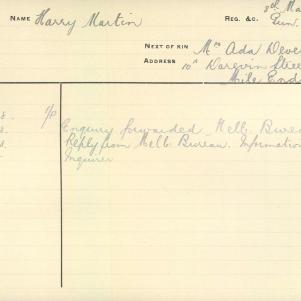 NAME Harry Martin REG. &C. 8th Ma
NEXT OF KIN Mrs Ada Deve
ADDRESS 10A Darevin Stree
Mile End
8. Enquiry forwarded Melb. Burea
Reply from Melb Bureau. Information
Inquirer